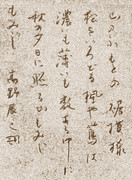 もみじ 高野辰之詞
秋の夕日に照る山もみじ
濃いも薄いも数ある中に
松をいろどる楓や蔦は
山のふもとの裾模様